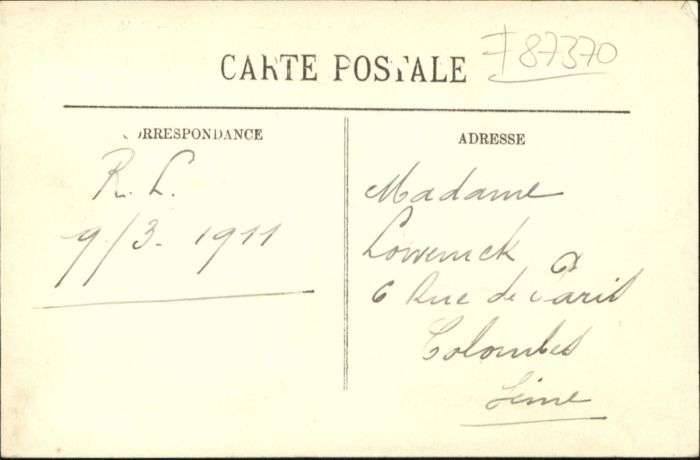 F 87370
CARTE POSTALE
CORRESPONDANCE
R. L.
9/3. 1911
ADRESSE
Madame
6 Rue de Paris
Colombes
Seine